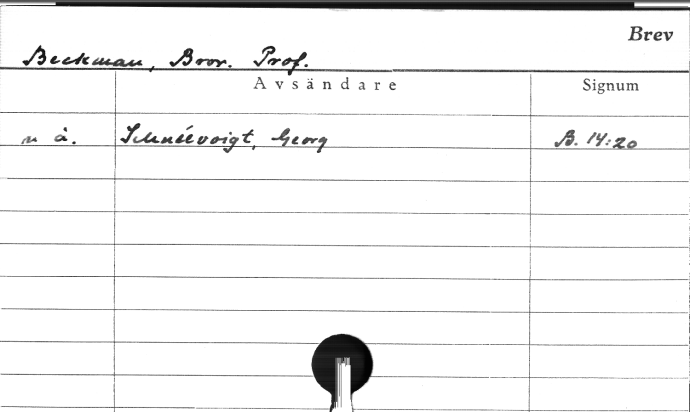 Brev
Beckman, Bror. Prof.
Avsändare Signum
u å. Schnéevoigt, Georg B. 14:20